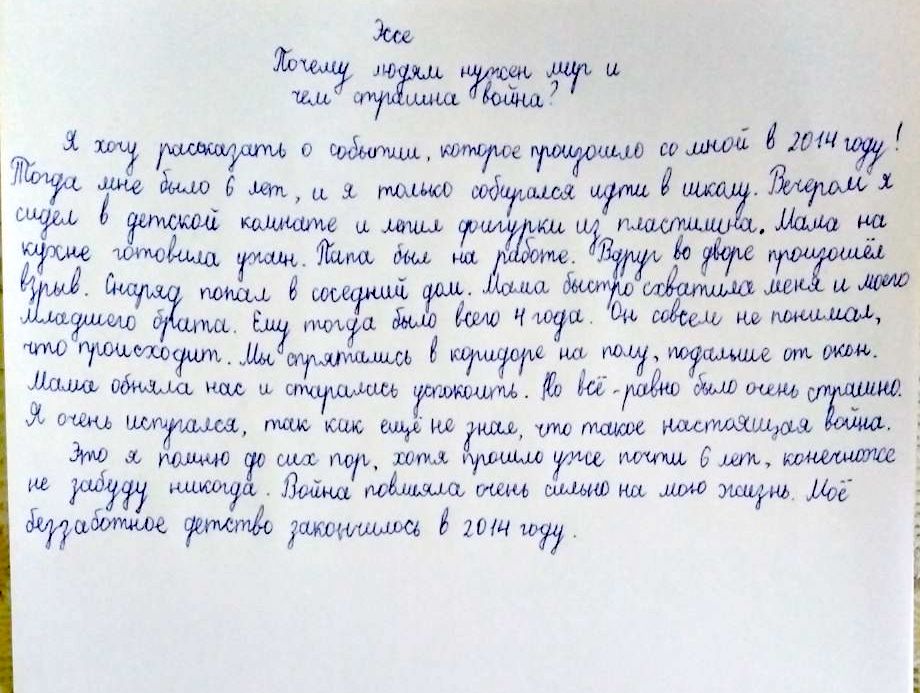 Эссе
Почему людям нужен мир и
чем страшна война?
Я хочу рассказать о событии, которое произошло со мной в 2014 году!
Тогда мне было 6 лет, и я только собирался идти в школу. Вечером я
сидел в детской комнате и лепил фигурки из пластилина. Мама на
кухне готовила ужин. Папа был на работе. Вдруг во дворе произошёл
взрыв. Снаряд попал в соседний дом. Мама быстро схватила меня и моего
младшего брата. Ему тогда было всего 4 года. Он совсем не понимал,
что происходит. Мы спрятались в коридоре на полу, подальше от окон.
Мама обняла нас и старалась успокоить. Но всё-равно было очень страшно.
Я очень испугался, так как ещё не знал, что такое настоящая война.
Это я помню до сих пор, хотя прошло уже почти 6 лет, конечноже
не забуду никогда. Война повлияла очень сильно на мою жизнь. Моё
беззаботное детство закончилось в 2014 году.